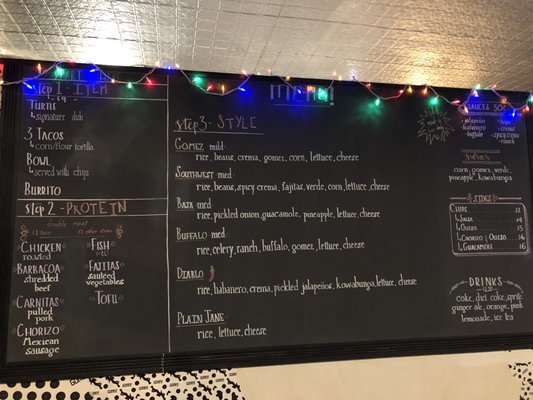 Step 1 - Item
Turtle
↳ signature dish
3 Tacos
↳ corn/flour tortilla
Bowl
↳ served with chips
Burrito
Step 2 - Protein
double meat
Chicken
roasted
Barbacoa
shredded
beef
Carnitas
pulled
pork
Chorizo
Mexican
sausage
Fish
Fajitas
sauteed
vegetables
Tofu
Menu
Step 3 - Style
Gomez mild
rice, beans, crema, gomez, corn, lettuce, cheese
Southwest med
rice, beans, spicy crema, fajitas, verde, corn, lettuce, cheese
Baja med
rice, pickled onion, guacamole, pineapple, lettuce, cheese
Buffalo med
rice, celery, ranch, buffalo, gomez, lettuce, cheese
Diablo
rice, habanero, crema, pickled jalapeños, kowabunga, lettuce, cheese
Plain Jane
rice, lettuce, cheese
Sauces
jalapeño
habanero
buffalo
baja
crema
spicy crema
ranch
Salsas
corn, gomez, verde,
pineapple, kowabunga
Sides
Chips
↳ Salsa
↳ Queso
↳ Chorizo & Queso
↳ Guacamole
Drinks
coke, diet coke, sprite
ginger ale, orange, pink
lemonade, ice tea